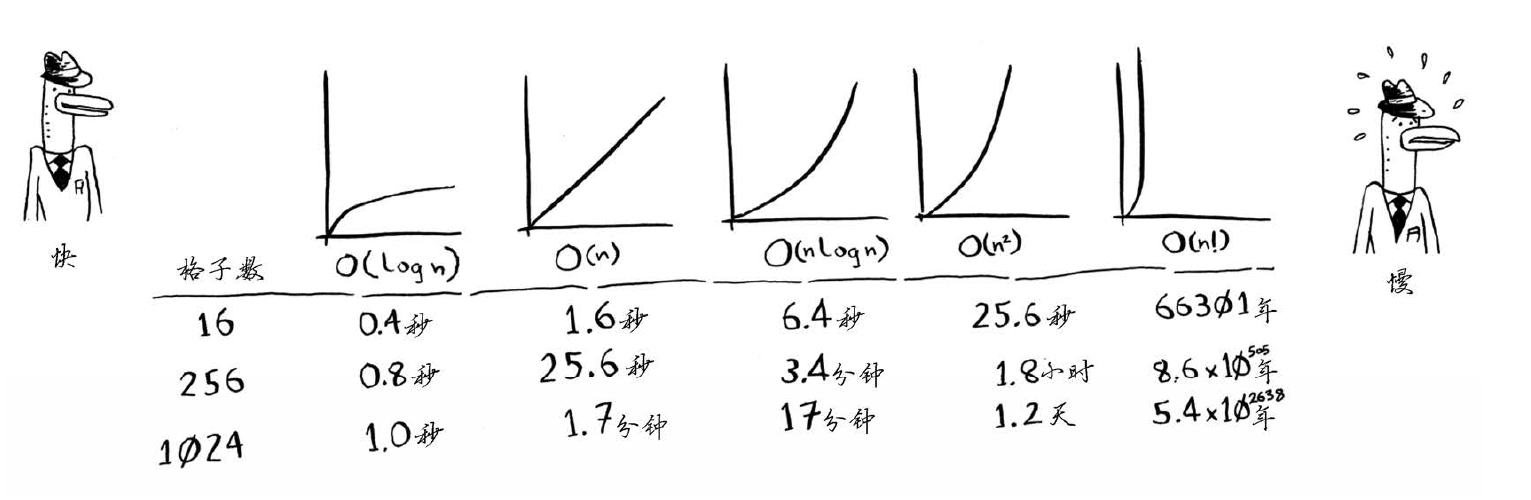 快
格子数 O(logn) O(n) O(nlogn) O(n²) O(n!)
慢
16 0.4秒 1.6秒 6.4秒 25.6秒 66301年
256 0.8秒 25.6秒 3.4分钟 1.8小时 8.6x10⁵⁰⁵年
1024 1.0秒 1.7分钟 17分钟 1.2天 5.4x10²⁶³⁸年